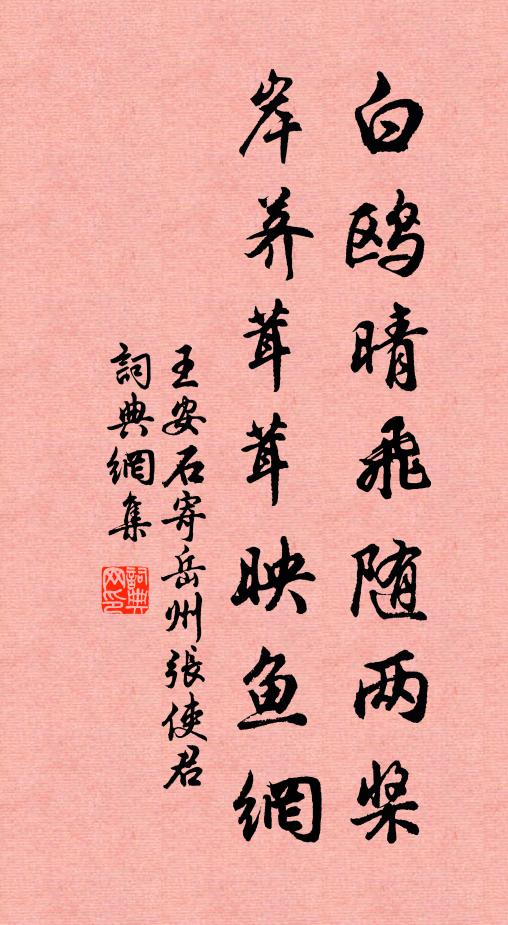 白鸥晴飛随两桨
岸荠茸茸映鱼網
王安石寄岳州張使君
詞典網集
詞典网印